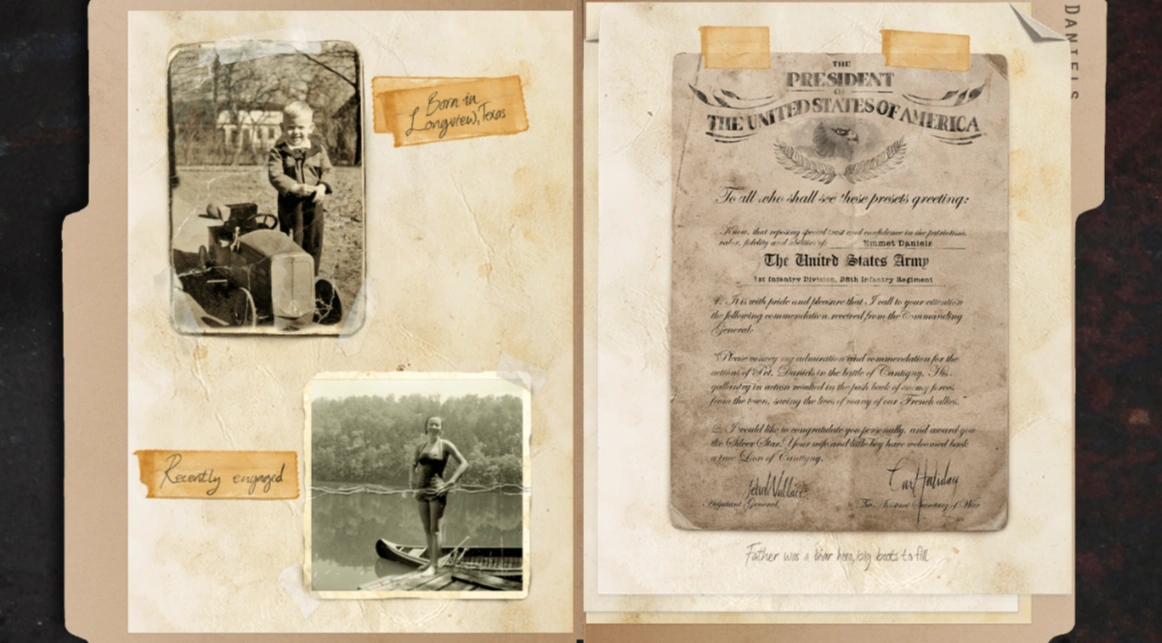 Born in
Longview, Texas
Recently engaged
DANIELS
THE
PRESIDENT
OF
THE UNITED STATES OF AMERICA
To all who shall see these presets greeting:
Know, that reposing special trust and confidence in the patriotism,
valor, fidelity and abilities of: Emmet Daniels
The United States Army
1st Infantry Division, 28th Infantry Regiment
1. It is with pride and pleasure that I call to your attention
the following commendation, received from the Commanding
General:
"Please convey my admiration and commendation for the
actions of Pvt. Daniels in the battle of Cantigny. His
gallantry in action resulted in the push back of enemy forces
from the town, saving the lives of many of our French allies."
2. I would like to congratulate you personally, and award you
the Silver Star! Your wife and little boy have welcomed back
a true Lion of Cantigny.
John Wallace
Adjutant General,
The Assistant Secretary of War
Father was a war hero, big boots to fill